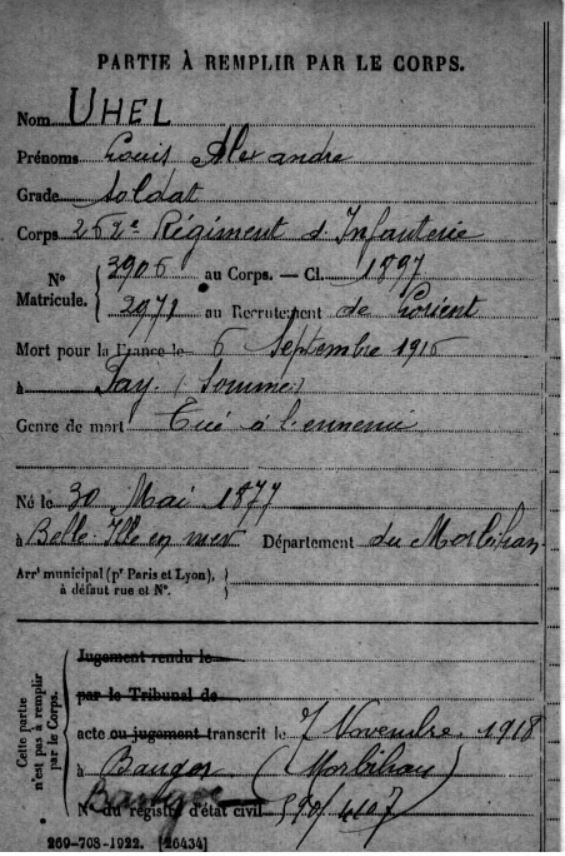 PARTIE À REMPLIR PAR LE CORPS.
Nom UHEL
Prénoms Louis Alexandre
Grade Soldat
Corps 262e Régiment d'Infanterie
No Matricule. 3906 au Corps. — Cl. 1897
2971 au Recrutement de Lorient
Mort pour la France le 6 Septembre 1916
à Fay. (Somme)
Genre de mort Tué à l'ennemi
Né le 30 Mai 1877
à Belle-Ille en mer Département du Morbihan
Arrt municipal (pr Paris et Lyon),
à défaut rue et No.
Cette partie n'est pas à remplir par le Corps.
Jugement rendu le
par le Tribunal de
acte ou jugement transcrit le 7 Novembre 1918
à Bangor (Morbihan)
Bangor
No du registre d'état civil 590/4107
269-708-1922. [26434]